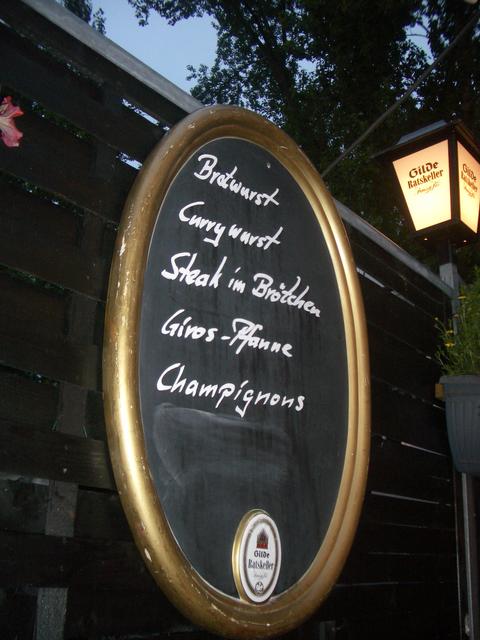 Bratwurst
Currywurst
Steak im Brötchen
Giros-Pfanne
Champignons
Gilde
Ratskeller
Gilde
Ratskeller
Gilde